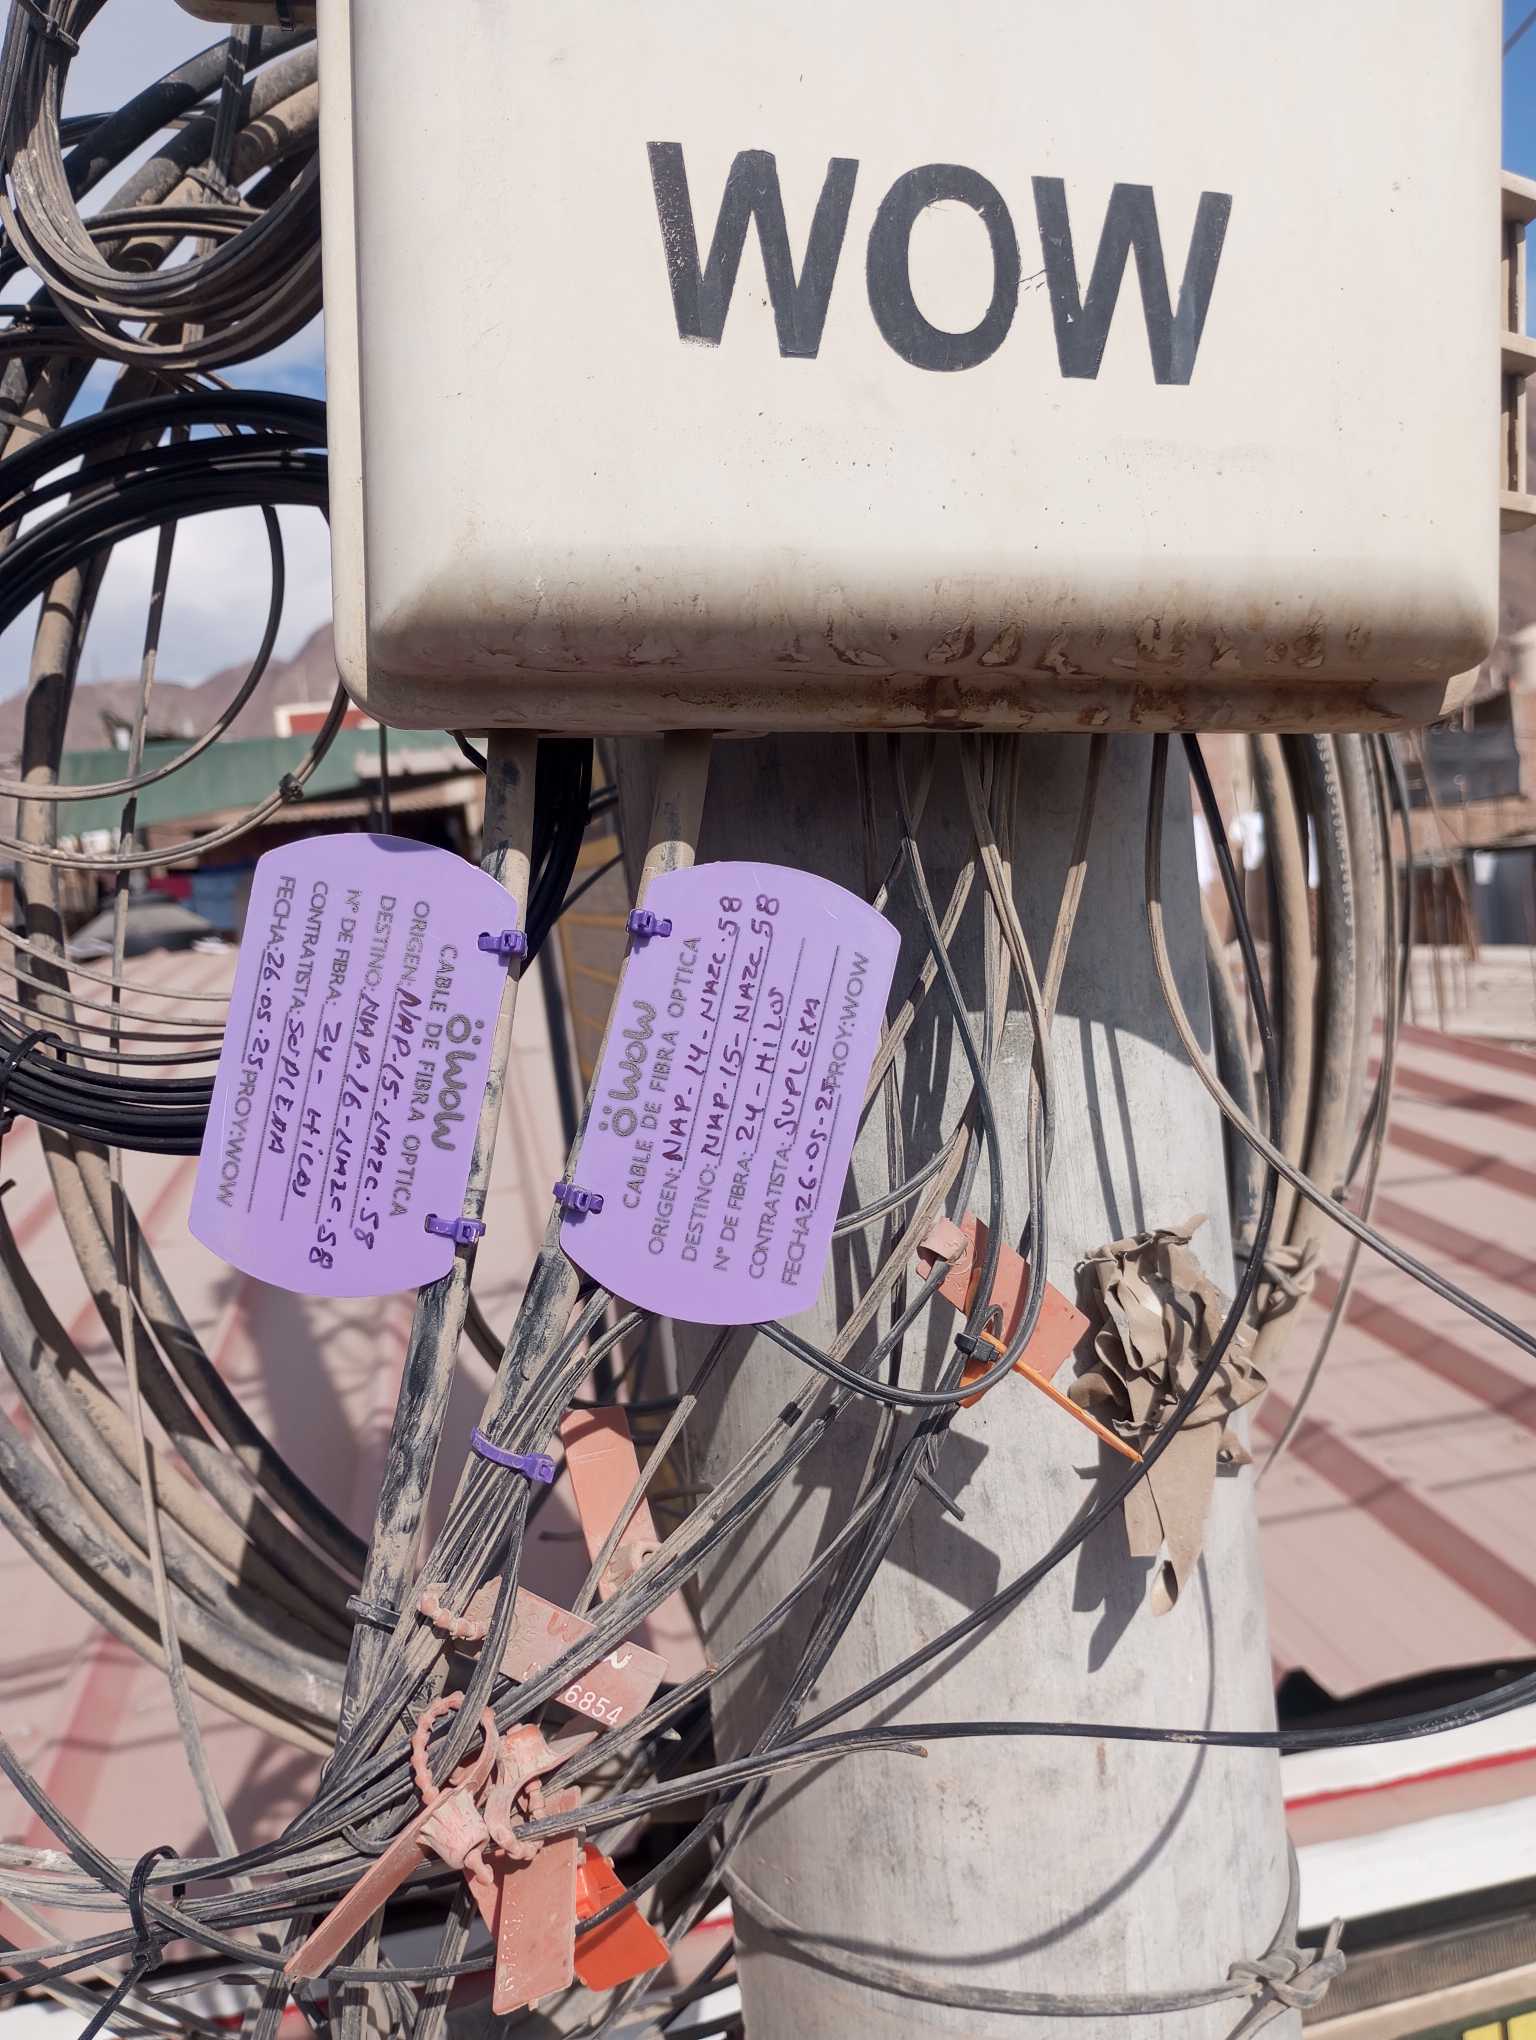 WOW
WOW
CABLE DE FIBRA OPTICA
ORIGEN: NAP.15-NAZC.58
DESTINO: NAP.16-NAZC.58
N° DE FIBRA: 24-Hilos
CONTRATISTA:
FECHA: 26.05.25 PROY:WOW
WOW
CABLE DE FIBRA OPTICA
ORIGEN: NAP-14-NAZC.58
DESTINO: NAP-15-NAZC 58
N° DE FIBRA: 24-Hilos
CONTRATISTA: SUPLEXA
FECHA: 26-05-25 PROY:WOW
6854